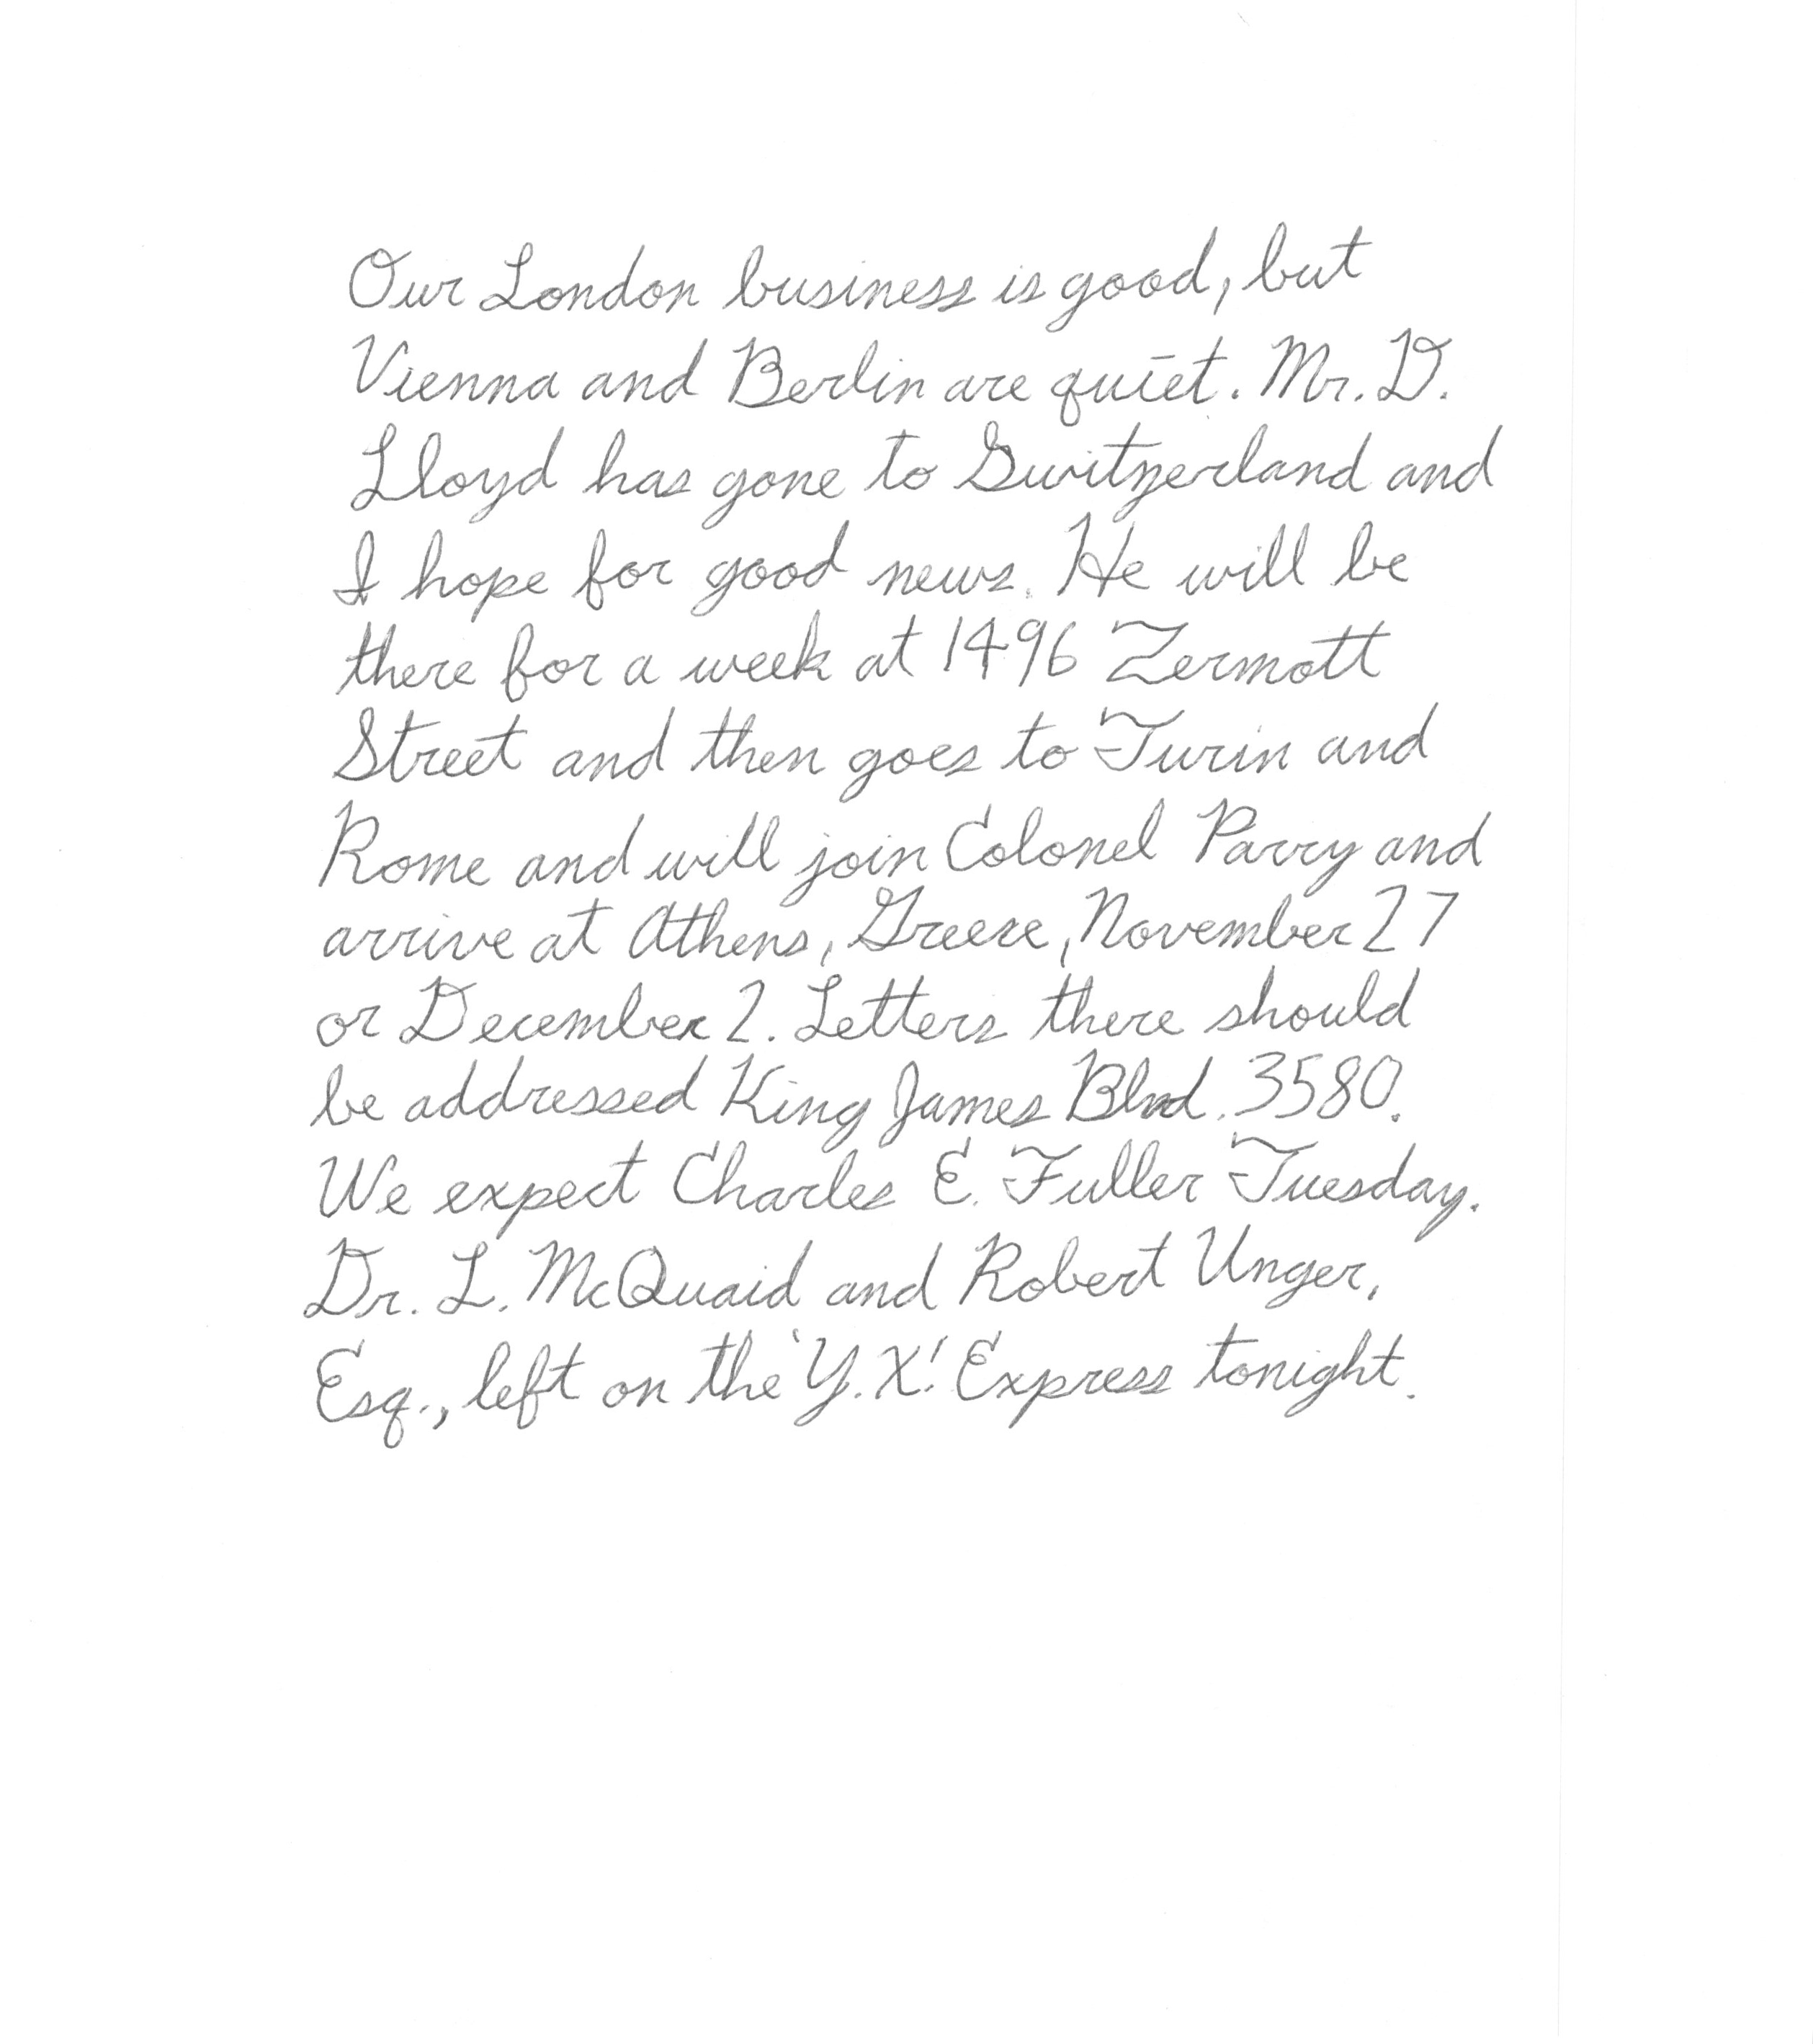 Our London business is good, but
Vienna and Berlin are quiet. Mr. D.
Lloyd has gone to Switzerland and
I hope for good news. He will be
there for a week at 1496 Zermott
Street and then goes to Turin and
Rome and will join Colonel Parry and
arrive at Athens, Greece, November 27
or December 2. Letters there should
be addressed King James Blvd. 3580.
We expect Charles E. Fuller Tuesday.
Dr. L. McQuaid and Robert Unger,
Esq., left on the 'Y.X.' Express tonight.